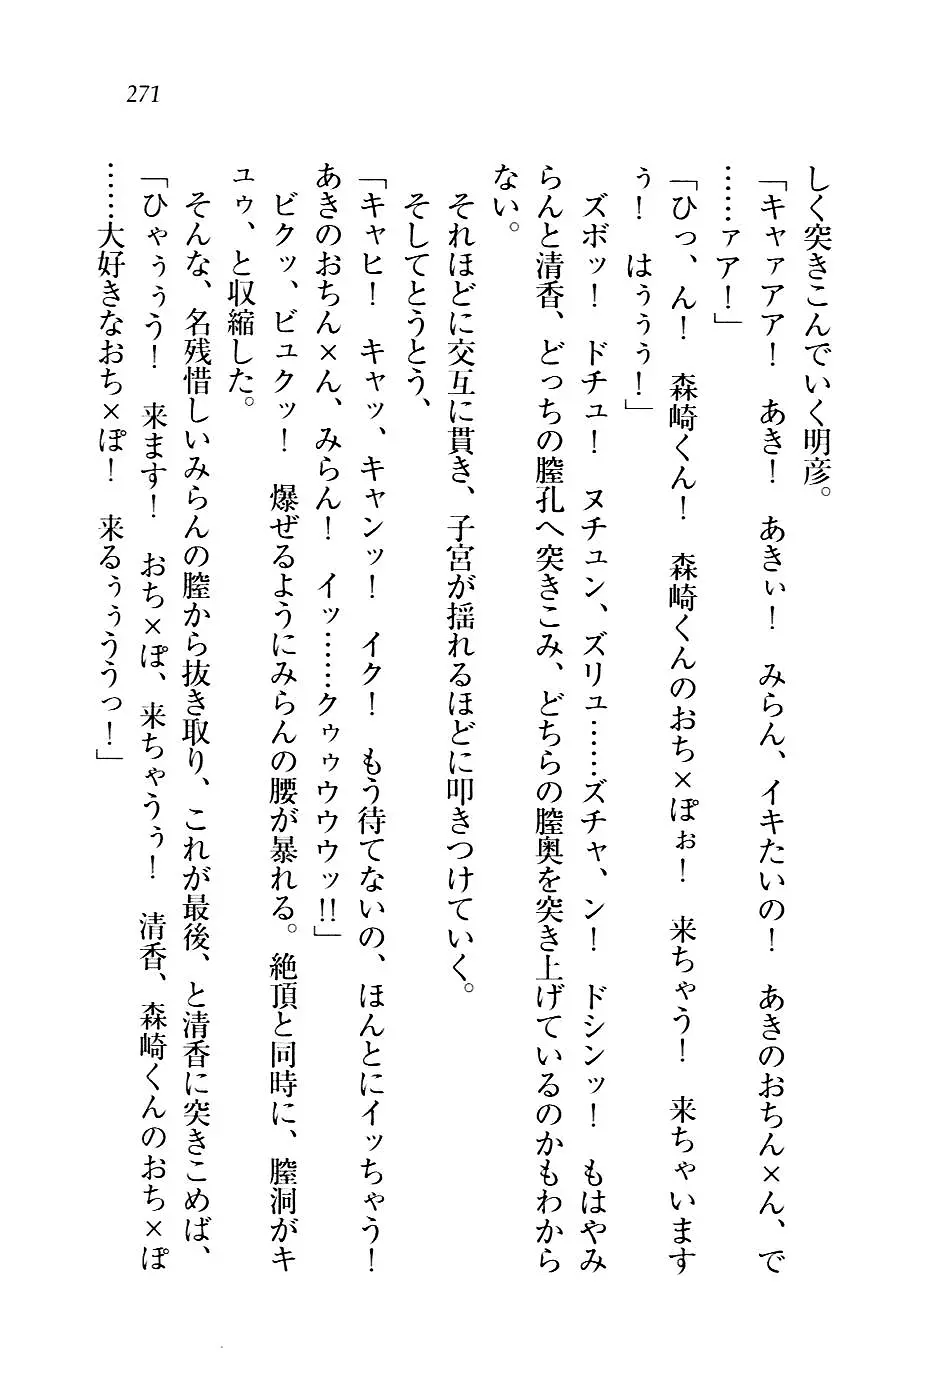 271
しく突きこんでいく明彦。
「キャァアア！　あき！　あきぃ！　みらん、イキたいの！　あきのおちん×ん、で
……ァア！」
「ひっ、ん！　森崎くん！　森崎くんのおち×ぽぉ！　来ちゃう！　来ちゃいます
ぅ！　はぅぅぅ！」
　ズボッ！　ドチュ！　ヌチュン、ズリュ……ズチャ、ン！　ドシンッ！　もはやみ
らんと清香、どっちの膣孔へ突きこみ、どちらの膣奥を突き上げているのかもわから
ない。
　それほどに交互に貫き、子宮が揺れるほどに叩きつけていく。
　そしてとうとう、
「キャヒ！　キャッ、キャンッ！　イク！　もう待てないの、ほんとにイッちゃう！
あきのおちん×ん、みらん！　イッ……クゥゥウウウッ!!」
　ビクッ、ビュクッ！　爆ぜるようにみらんの腰が暴れる。絶頂と同時に、膣洞がキ
ュゥ、と収縮した。
　そんな、名残惜しいみらんの膣から抜き取り、これが最後、と清香に突きこめば、
「ひゃぅぅう！　来ます！　おち×ぽ、来ちゃうぅ！　清香、森崎くんのおち×ぽ
……大好きなおち×ぽ！　来るぅぅううっ！」